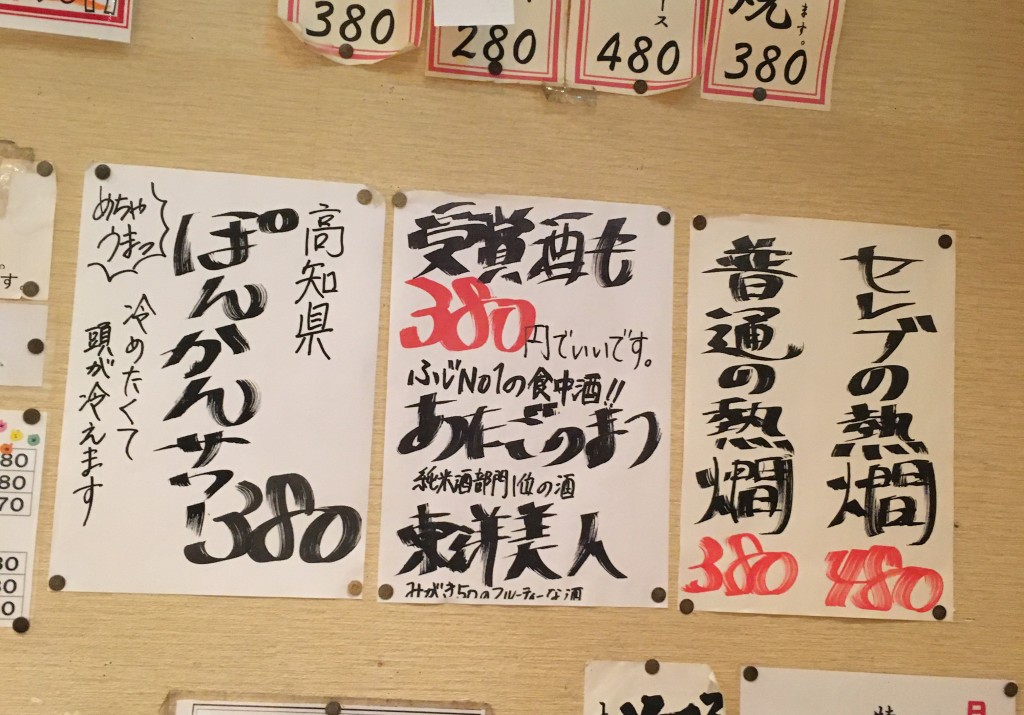 380
280
480
ース
ます。
焼
380
高知県
ぽんかんサワー
380
めちゃ
うまっ
冷めたくて
頭が冷えます
受賞酒も
380
円でいいです。
ふじNo1の食中酒!!
あたごのまつ
純米酒部門1位の酒
東洋美人
みがき50のフルーティーな酒
セレブの熱燗
480
普通の熱燗
380
す
80
80
70
80
80
0
日